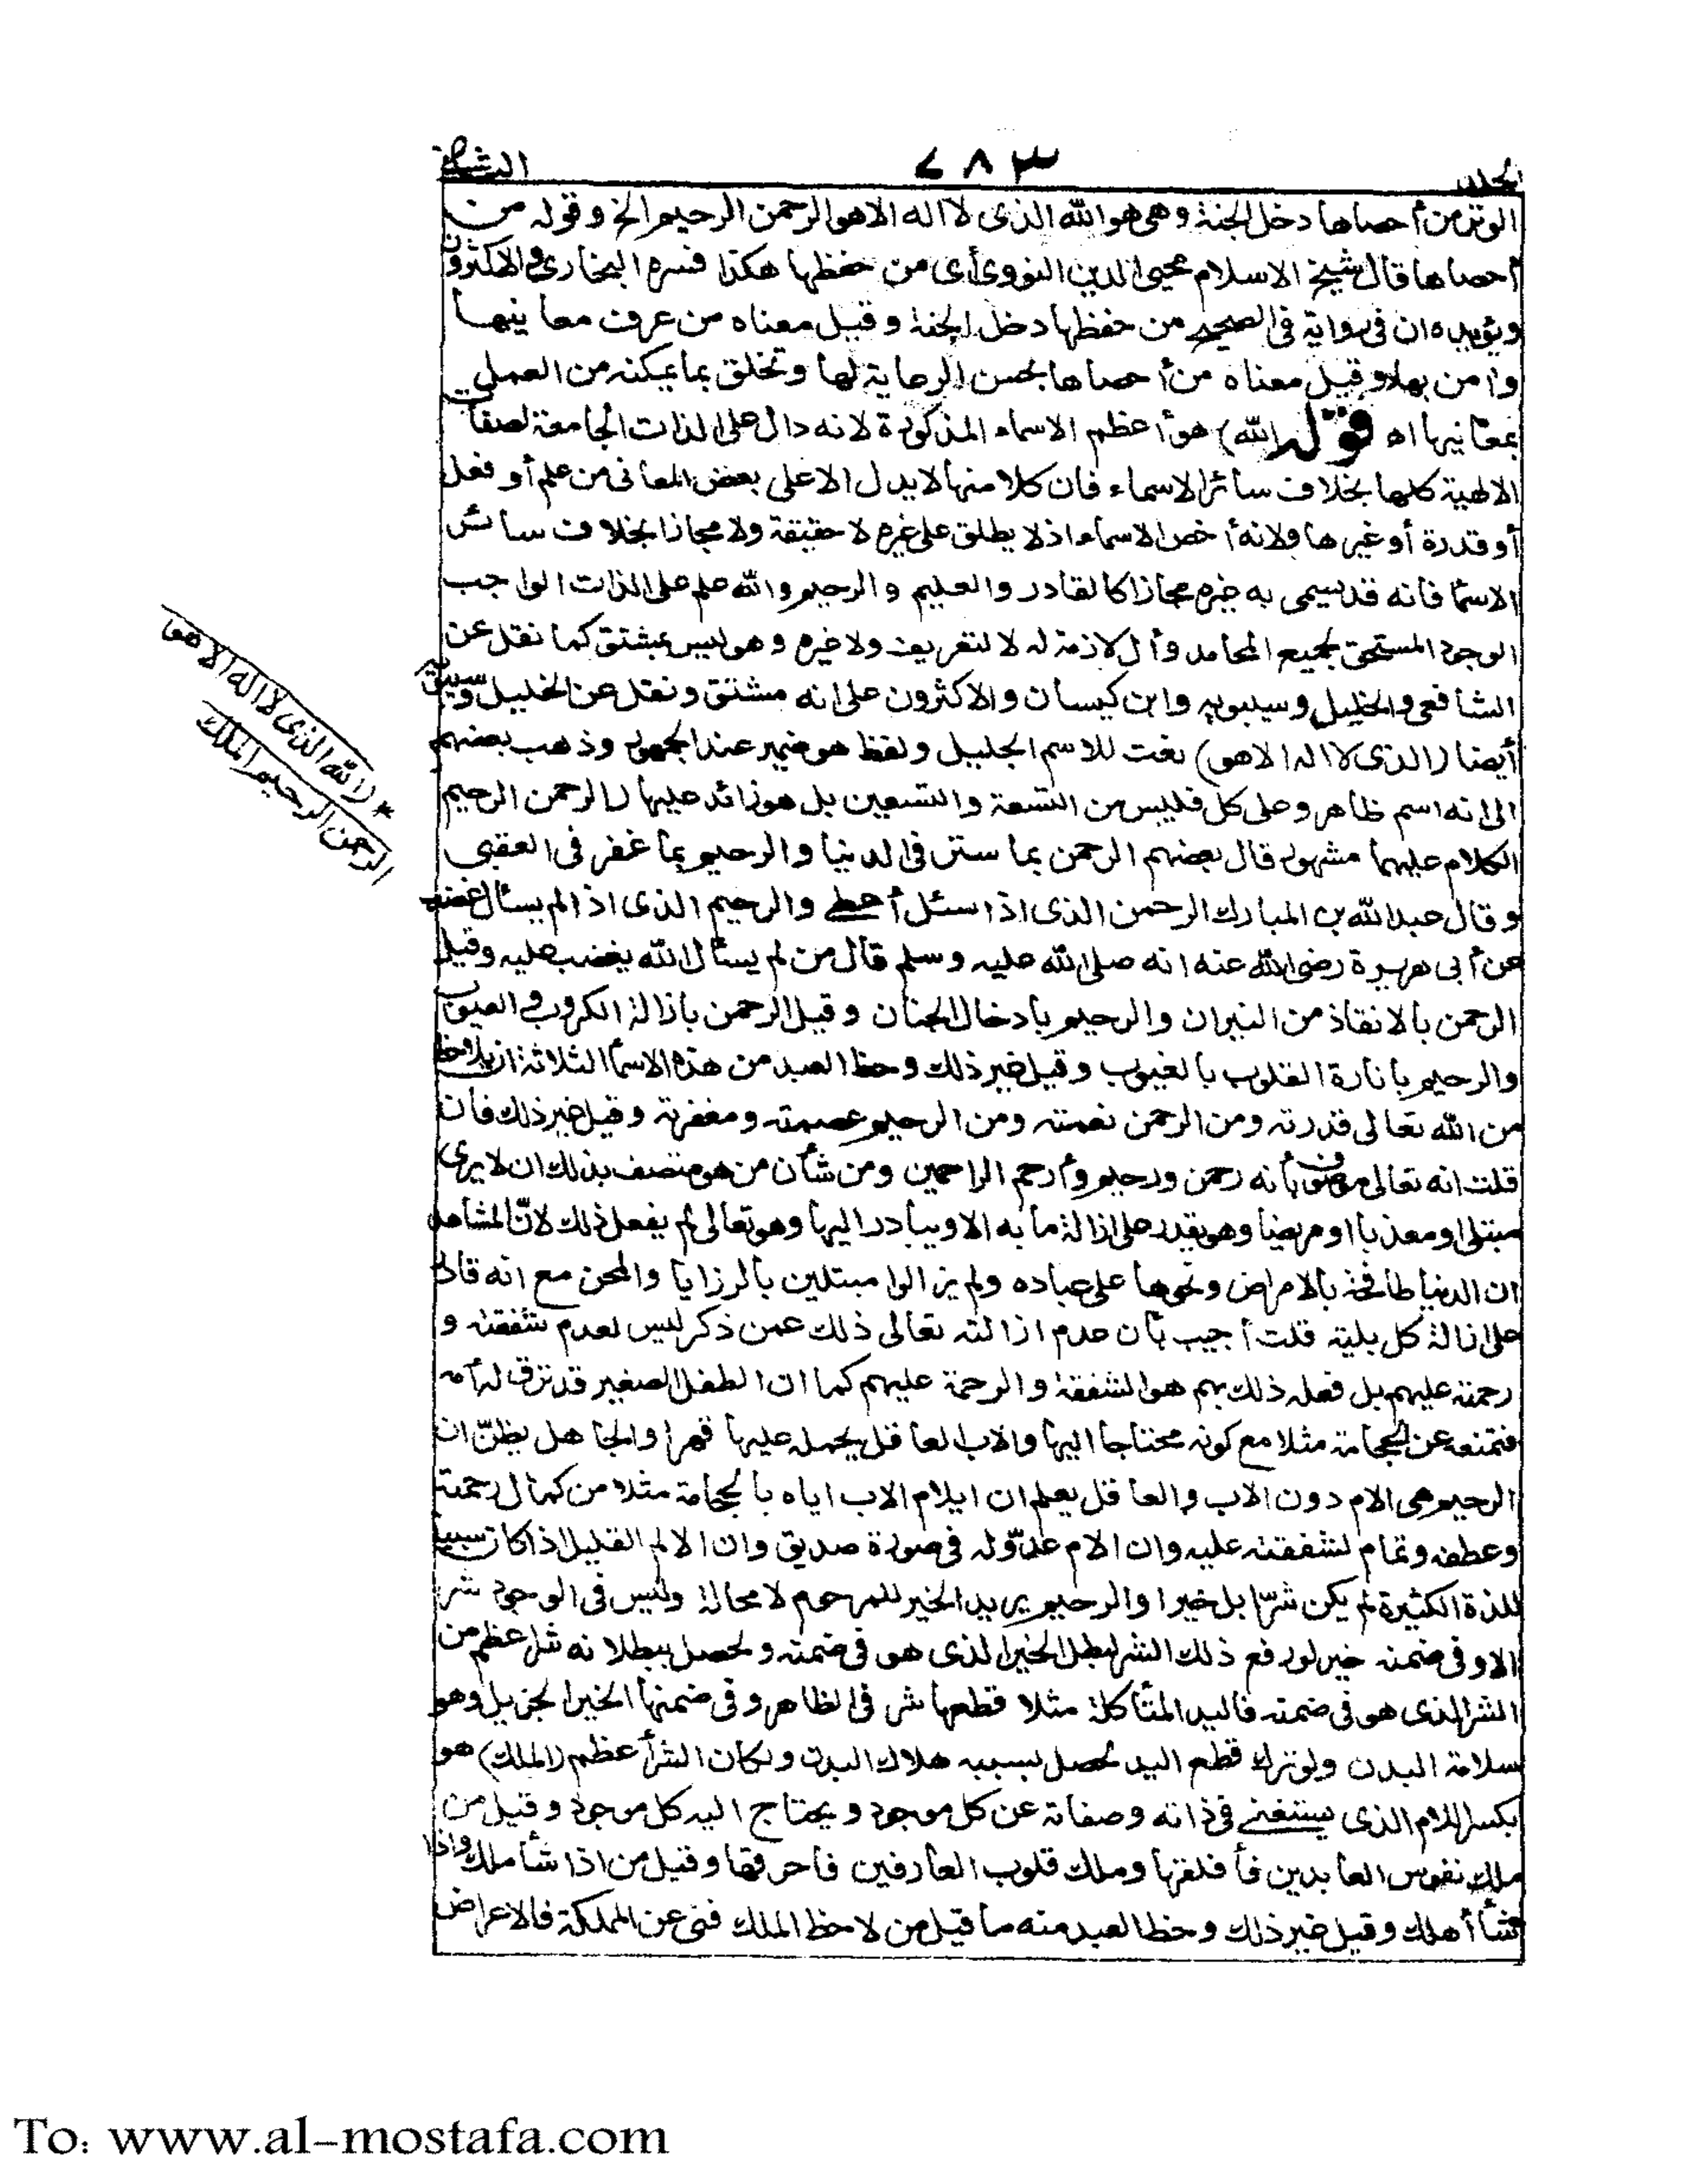 الجلد ٣٨٧ الشاني
الوتر من أحصاها دخل الجنة وهى هو الله الذى لا اله الا هو الرحمن الرحيم الخ وقوله من
أحصاها قال شيخ الاسلام محيى الدين النووى أى من حفظها هكذا فسره البخارى والاكثرون
ويؤيده ان فى رواية فى الصحيح من حفظها دخل الجنة وقيل معناه من عرف معانيها
وآمن بها وقيل معناه من أحصاها بحسن الرعاية لها وتخلق بما يمكنه من العمل
بمعانيها اه قوله (الله) هو أعظم الاسماء المذكورة لانه دال على الذات الجامعة لصفات
الالهية كلها بخلاف سائر الاسماء فان كلا منها لا يدل الا على بعض المعانى من علم أو فعل
أو قدرة أو غيرها ولانه أخص الاسماء اذ لا يطلق على غيره لا حقيقة ولا مجازا بخلاف سائر
الاسما فانه قد يسمى به غيره مجازا كالقادر والعليم والرحيم والله علم على الذات الواجب
الوجود المستحق لجميع المحامد وأل لازمة له لا لتعريف ولا غيره وهو ليس بمشتق كما نقل عن
الشافعى والخليل وسيبويه وابن كيسان والاكثرون على انه مشتق ونقل عن الخليل وسيبويه
أيضا (الذى لا اله الا هو) نعت للاسم الجليل ولفظ هو ضمير عند الجمهور وذهب بعضهم
الى انه اسم ظاهر وعلى كل فليس من التسعة والتسعين بل هو زائد عليها (الرحمن الرحيم
الكلام عليهما مشهور قال بعضهم الرحمن بما ستر فى الدنيا والرحيم بما غفر فى العقبى
وقال عبد الله بن المبارك الرحمن الذى اذا سئل أعطى والرحيم الذى اذا لم يسئال غضب
عن أبى هريرة رضى الله عنه انه صلى الله عليه وسلم قال من لم يسئال الله يغضب عليه وقيل
الرحمن بالانقاذ من النيران والرحيم بادخال الجنان وقيل الرحمن بازالة الكروب والعيوب
والرحيم بانارة القلوب بالغيوب وقيل غير ذلك وحظ العبد من هذه الاسما الثلاثة ان يلاحظ
من الله تعالى قدرته ومن الرحمن نعمته ومن الرحيم عصمته ومغفرته وقيل غير ذلك فان
قلت انه تعالى موصوف بأنه رحمن ورحيم وأرحم الراحمين ومن شأن من هو متصف بذلك ان لا يرى
مبتلى او معذبا او مريضا وهو يقدر على ازالة ما به الا ويبادر اليها وهو تعالى لم يفعل ذلك لانّ المشاهد
ان الدنيا طافحة بالامراض ونحوها على عباده ولم يزالوا مبتلين بالرزايا والمحن مع انه قادر
على ازالة كل بلية قلت أجيب بأن عدم ازالته تعالى ذلك عمن ذكر ليس لعدم شفقته و
رحمته عليهم بل فعله ذلك بهم هو الشفقة والرحمة عليهم كما ان الطفل الصغير قد ترق له أمه
فتمنعه عن الحجامة مثلا مع كونه محتاجا اليها والاب العاقل يحمله عليها قهرا والجاهل يظنّ ان
الرحيم هى الام دون الاب والعاقل يعلم ان ايلام الاب اياه بالحجامة مثلا من كمال رحمته
وعطفه وتمام لشفقته عليه وان الام عدوّ له فى صورة صديق وان الالم القليل اذا كان سببا
للذة الكثيرة لم يكن شرّا بل خيرا والرحيم يريد الخير للمرحوم لا محالة وليس فى الوجود شر
الا وفى ضمنه خير لو رفع ذلك الشر لبطل الخير الذى هو فى ضمنه ولحصل ببطلانه شر اعظم من
الشر الذى هو فى ضمنه فاليد المتأكلة مثلا قطعها شر فى الظاهر وفى ضمنها الخير الجزيل وهو
سلامة البدن ولو ترك قطع اليد لحصل بسببه هلاك البدن ولكان الشر أعظم (الملك) هو
بكسر اللام الذى يستغنى فى ذاته وصفاته عن كل موجود ويحتاج اليه كل موجود وقيل من
ملك نفوس العابدين فأقلقها وملك قلوب العارفين فاحرقها وقيل من اذا شأ ملك واذا
شأ أهلك وقيل غير ذلك وحظ العبد منه ما قيل من لاحظ الملك فنى عن المملكة فالاعراض
* (الله الذى لا اله الا هو
الرحمن الرحيم الملك
To: www.al-mostafa.com